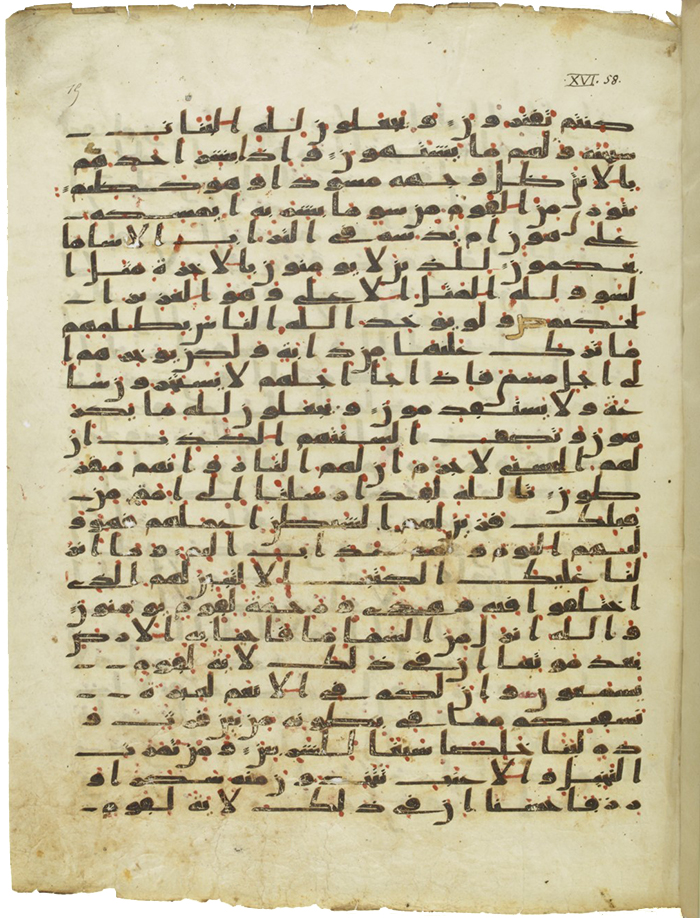 XVI. 58.
كنتم تفترون ويجعلون لله البنات
سبحنه ولهم ما يشتهون واذا بشر احدهم
بالانثى ظل وجهه مسودا وهو كظيم
يتورى من القوم من سو ما بشر به ايمسكه
على هون ام يدسه في التراب الا سا ما
يحكمون للذين لا يومنون بالاخرة مثل ا
لسو ولله المثل الاعلى وهو العزيز ا
لحكيم ولو يوخذ الله الناس بظلمهم
ما ترك عليها من دابة ولكن يوخرهم ا
لى اجل مسمى فاذا جا اجلهم لا يستخرون سا
عة ولا يستقدمون ويجعلون لله ما يكر
هون وتصف السنتهم الكذب ان
لهم الحسنى لا جرم ان لهم النار وانهم مفر
طون تالله لقد ارسلنا الى امم من
قبلك فزين لهم الشيطن اعملهم فهو و
ليهم اليوم ولهم عذاب اليم وما انز
لنا عليك الكتب الا لتبين لهم الذى
اختلفوا فيه وهدى ورحمة لقوم يومنون
والله انزل من السما ما فاحيا به الارض
بعد موتها ان في ذلك لاية لقوم
يسمعون وان لكم في الانعم لعبرة
نسقيكم مما في بطونه من بين فرث و
دم لبنا خلصا سيغا للشربين ومن ثمرت
النخيل والاعنب تتخذون منه سكرا و
رزقا حسنا ان في ذلك لاية لقوم